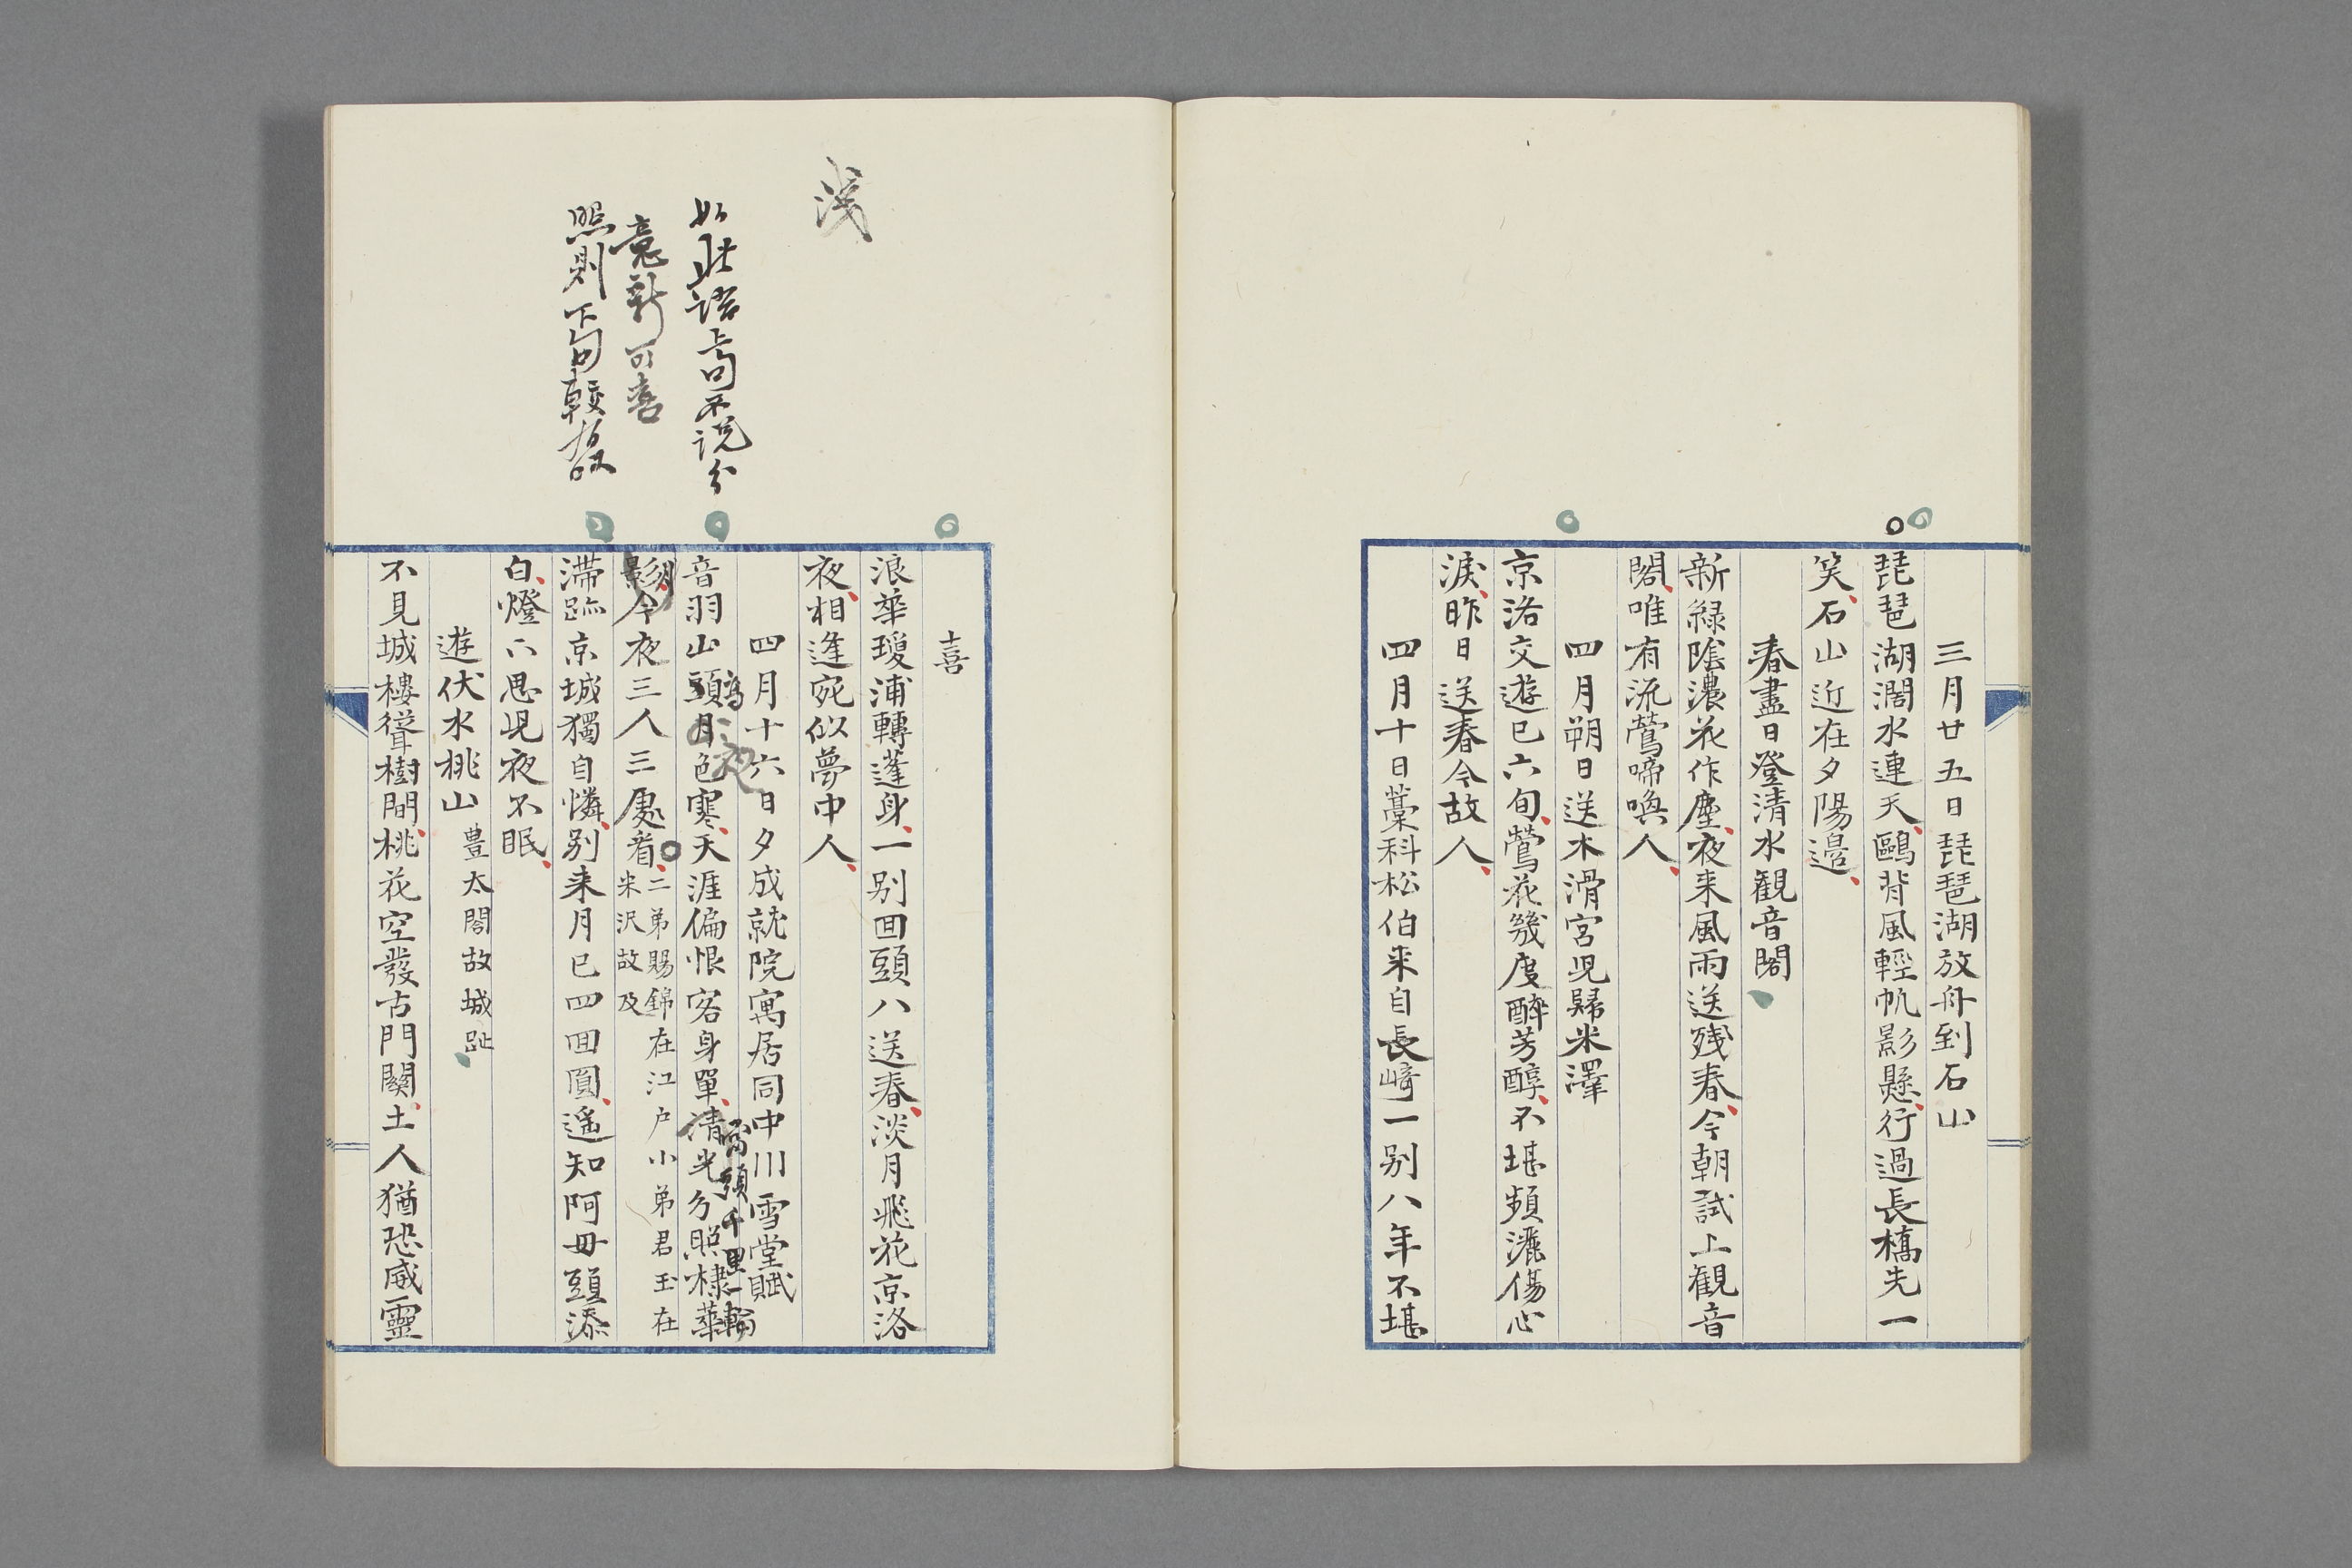 三月廿五日琵琶湖放舟到石山
琵琶湖濶水連天鷗背風輕帆影懸行過長橋先一
笑石山近在夕陽邉
春盡日登清水観音閣
新緑陰濃花作塵夜来風雨送残春今朝試上観音
閣唯有流鶯啼喚人
四月朔日送木滑宮児歸米澤
京洛交遊已六旬鶯花幾度醉芳醇不堪頻灑傷心
涙昨日送春今故人
四月十日藁科松伯来自長﨑一别八年不堪
喜
浪華瓊浦轉蓬身一别囬頭八送春淡月飛花京洛
夜相逢宛似夢中人
四月十六日夕成就院寓居同中川雪堂賦
音羽山頭月色寒天涯偏恨客身單清光分照棣華
影今夜三人三處看
二弟賜錦在江户小弟君玉在
米沢故及
滞跡京城獨自憐别来月已四囬圓遥知阿毋頭添
白燈下思児夜不眠
遊伏水桃山
豊太閤故城趾
不見城樓聳樹間桃花空發古門關土人猶恐威靈
浅
如此語上句不説分
意新可喜
照則下句較故
雷頭千里一輪